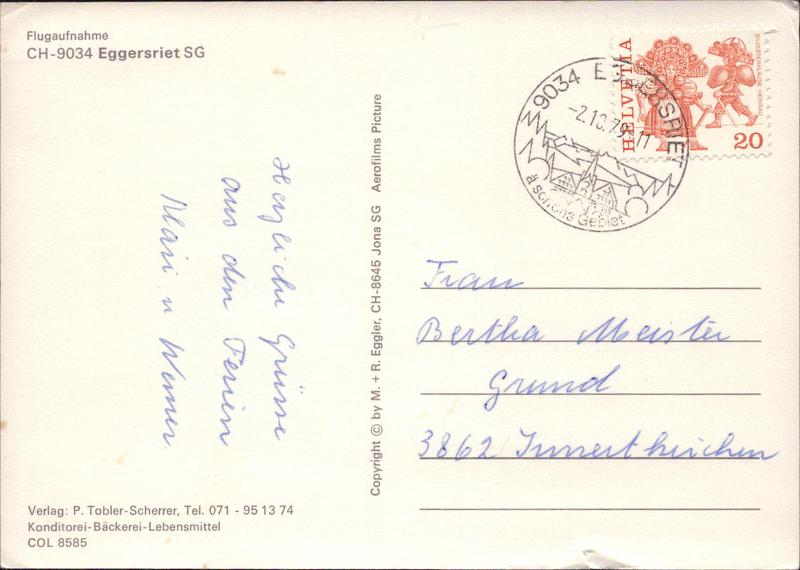 Flugaufnahme
CH-9034 Eggersriet SG
Herzliche Grüsse
aus den Ferien
Klari u Werner
Verlag: P. Tobler-Scherrer, Tel. 071 - 95 13 74
Konditorei-Bäckerei-Lebensmittel
COL 8585
Copyright © by M. + R. Eggler, CH-8645 Jona SG Aerofilms Picture
9034 EGGERSRIET
-2.10.79-11
ä schöns Gebiet
HELVETIA
SILVESTERKLÄUSE HERISAU
20
Frau
Bertha Meister
Grund
3862 Innertkirchen